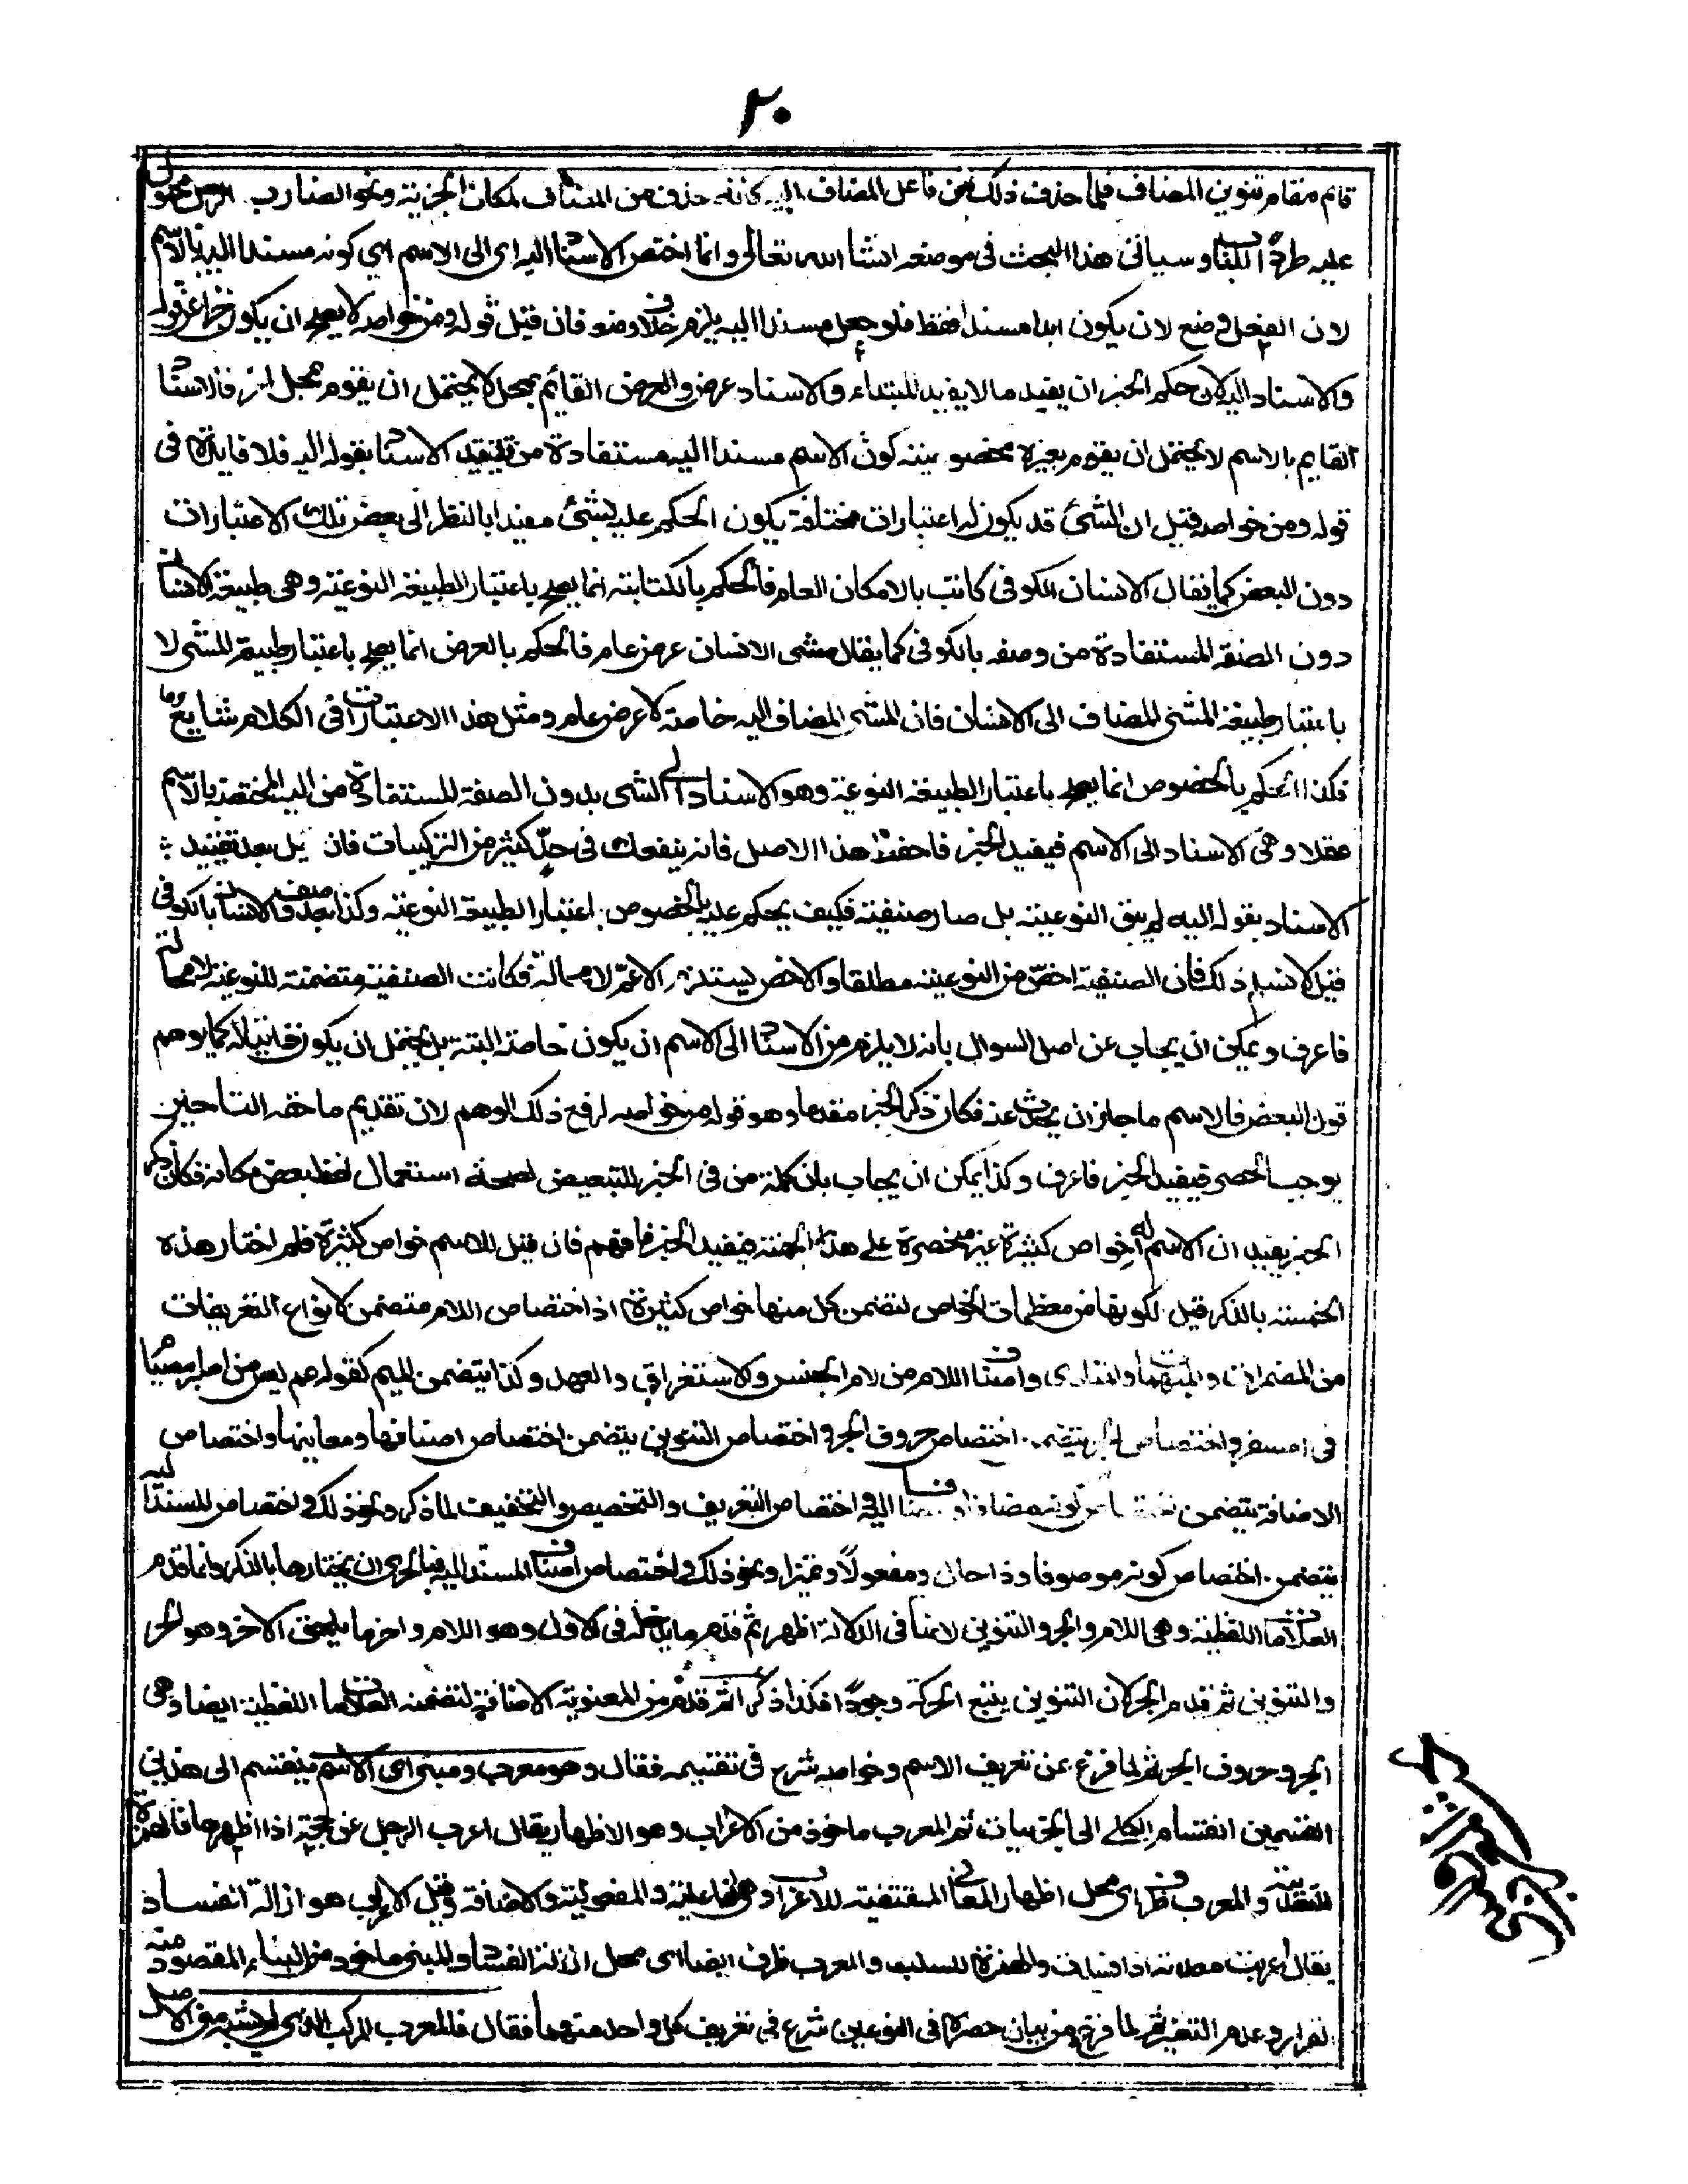 ٢٠
قائم مقام تنوين المضاف فلما حذف ذلك من فاعل المضاف اليه فكانه حذف من المضاف لمكان الجزئية ونحو الضارب الرجل محمول
عليه طردا للباب وسياتى هذا البحث فى موضعه انشا الله تعالى وانما اختص الاسناد اليه اى الى الاسم اى كونه مسندا اليه بالاسم
لان الفعل وضع لان يكون ابدا مسندا فقط فلو جعل مسندا اليه يلزم خلاف وضعه فان قيل قوله ومن خواصه لا يصح ان يكون خبرا عن قوله
والاسناد اليه لان حكم الخبر ان يفيد ما لا يفيد المبتداء والاسناد عرض والعرض القائم بمحل لا يحتمل ان يقوم بمحل اخر فالاسناد
القايم بالاسم لا يحتمل ان يقوم بغيره فخصوصيته كون الاسم مسندا اليه مستفادة من تقييد الاسناد بقوله اليه فلا فايدة فى
قوله ومن خواصه قيل ان الشئ قد يكون له اعتبارات مختلفة يكون الحكم عليه بشئ مفيدا بالنظر الى بعض تلك الاعتبارات
دون البعض كما يقال الانسان الكوفى كاتب بالامكان العام فالحكم بالكتابة انما يصح باعتبار الطبيعة النوعية وهى طبيعة الانسان
دون الصفة المستفادة من وصفه بالكوفى كما يقال مشى الانسان عرض عام فالحكم بالعرض انما يصح باعتبار طبيعة المشى لا
باعتبار طبيعة المشى المضاف الى الانسان فان المشى المضاف اليه خاصة لا عرض عام ومثل هذا الاعتبارات فى الكلام شايع
فكذا الحكم بالخصوص انما يصح باعتبار الطبيعة النوعية وهو الاسناد الى الشى بدون الصفة المستفادة من اليه المختصة بالاسم
عقلا وهى الاسناد الى الاسم فيفيد الخبر فاحفظ هذا الاصل فانه ينفعك فى حل كثير من التركيبات فان قيل بعد تقييد
الاسناد بقوله اليه لم يبق النوعية بل صار صنفية فكيف يحكم عليه بالخصوص باعتبار الطبيعة النوعية وكذا بعد وصف الانسان بالكوفى
قيل لا نسلم ذلك فان الصنفية اخص من النوعية مطلقا والاخص يستلزم الاعم لا محالة فكانت الصنفية متضمنة للنوعية لا محالة
فاعرف ويمكن ان يجاب عن اصل السوال بانه لا يلزم من الاسناد الى الاسم ان يكون خاصة البتة بل يحتمل ان يكون قابلا له كما يوهم
قول البعض فالاسم ما جاز ان يحدث عنه فكان ذكر الخبر مقدما وهو قوله من خواصه لرفع ذلك الوهم لان تقديم ما حقه التاخير
يوجب الحصر فيفيد الخبر فاعرف وكذا يمكن ان يجاب بان كلمة من فى الخبر للتبعيض لصحة استعمال لفظ بعض مكانه فكان ذكر
الخبر يفيد ان الاسم له خواص كثيرة غير منحصرة على هذا الجهة فيفيد الخبر فافهم فان قيل للاسم خواص كثيرة فلم اختار هذه
الخمسة بالذكر قيل لكونها من معظمات الخواص لتضمن كل منها خواص كثيرة اذ اختصاص اللام متضمن لانواع التعريفات
من المضمرات والمبهمات والمنادى واصناف اللام من لام الجنس والاستغراق والعهد وكذا يتضمن الميم كقوله عم ليس من امبر مصيام
فى امسفر واختصاص الجر يتضمن اختصاص حروف الجر واختصاص التنوين يتضمن اختصاص اصنافها ومعانيها واختصاص
الاضافة يتضمن اختصاص كونه مضافا ومضافا اليه واختصاص التعريف والتخصيص والتخفيف لما ذكر ونحو ذلك واختصاص المسند اليه
يتضمن اختصاص كونه موصوفا وذا حال ومفعولا ومميزا ونحو ذلك واختصاص اصناف المسند اليه فبالحرى ان يختارها بالذكر وانما قدم
العلامات اللفظية وهى اللام والجر والتنوين لانها فى الدلالة اظهر ثم قدم ما يدخل فى الاول وهو اللام واخر ما يلحق الاخر وهو الجر
والتنوين ثم قدم الجر لان التنوين يتبع الحركة وجودا فكذا ذكرا ثم قدم من المعنوية الاضافة لتضمنه العلامات اللفظية ايضا وهى
الجر وحروف الجر ثم لما فرغ عن تعريف الاسم وخواصه شرع فى تقسيمه فقال وهو معرب ومبنى اى الاسم ينقسم الى هذين
القسمين انقسام الكلى الى الجزئيات ثم المعرب ماخوذ من الاعراب وهو الاظهار يقال اعرب الرجل عن حجته اذا اظهرها فالهمزة
للتعدية والمعرب ظرف اى محل اظهار المعانى المقتضية للاعراب وهى الفاعلية والمفعولية والاضافة وقيل الاعراب هو ازالة الفساد
يقال اعربت معدته اذا فسدت والهمزة للسلب والمعرب ظرف ايضا اى محل ازالة الفساد والمبنى ماخوذ من البناء المقصود منه
القرار وعدم التغير ثم لما فرغ من بيان حصره فى النوعين شرع فى تعريف كل واحد منهما فقال فالمعرب المركب الذى لم يشبه مبنى الاصل